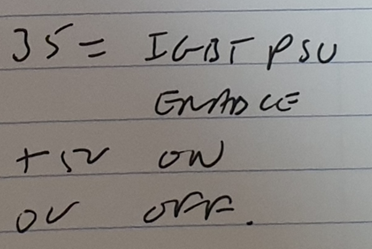 35 = IGBT PSU
ENABLE
+5V ON
0V OFF.